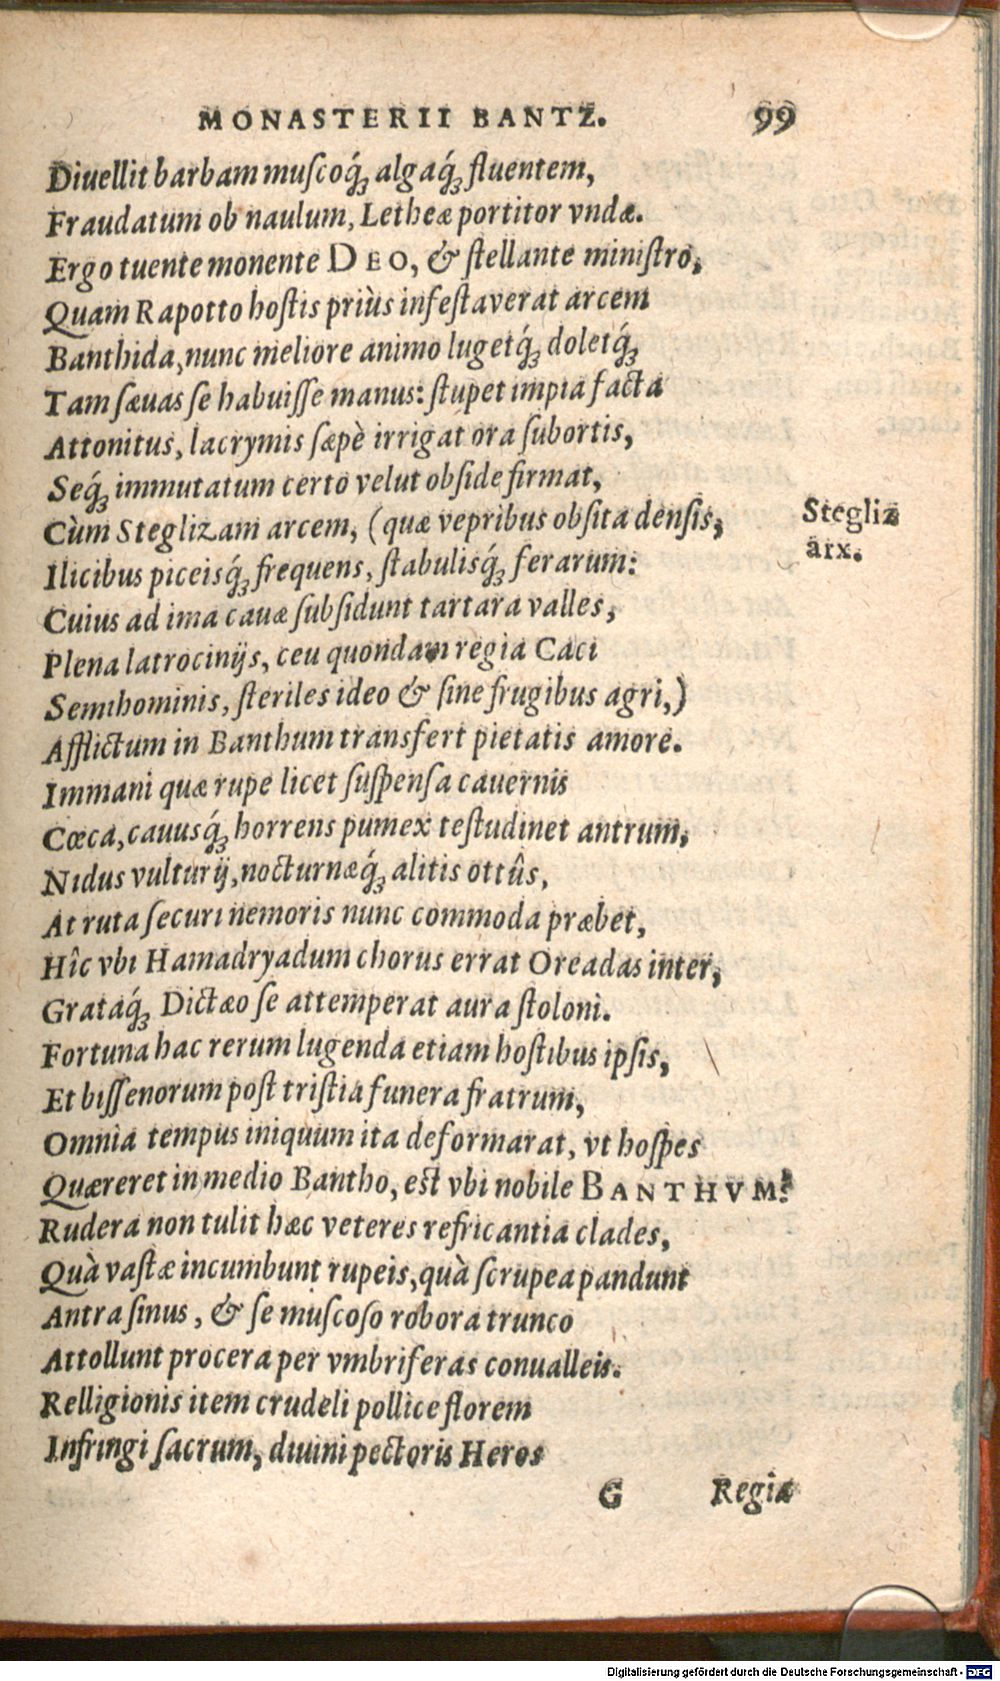 MONASTERII BANTZ. 99
Diuellit barbam muſcoq́ꝫ algaq́ꝫ fluentem,
Fraudatum ob naulum, Letheæ portitor vndæ.
Ergo tuente monente DEO, & ſtellante miniſtro,
Quam Rapotto hoſtis priùs infeſtaverat arcem
Banthida, nunc meliore animo lugetq́ꝫ doletq́ꝫ
Tam ſæuas ſe habuiſſe manus: ſtupet impia facta
Attonitus, lacrymis ſæpè irrigat ora ſubortis,
Seq́ꝫ immutatum certo velut obſide firmat,
Cùm Steglizam arcem, (quæ vepribus obſita denſis,
Stegliz
arx.
Ilicibus piceisq́ꝫ frequens, ſtabulisq́ꝫ ferarum:
Cuius ad ima cauæ ſubſidunt tartara valles,
Plena latrocinijs, ceu quondam regia Caci
Semihominis, ſteriles ideo & ſine frugibus agri,)
Afflictum in Banthum transfert pietatis amore.
Immani quæ rupe licet ſuſpenſa cauernis
Cœca, cauusq́ꝫ horrens pumex teſtudinet antrum,
Nidus vulturij, nocturnæq́ꝫ alitis ottûs,
At ruta ſecuri nemoris nunc commoda præbet,
Hîc vbi Hamadryadum chorus errat Oreadas inter,
Grataq́ꝫ Dictæo ſe attemperat aura ſtoloni.
Fortuna hac rerum lugenda etiam hoſtibus ipſis,
Et biſſenorum poſt triſtia funera fratrum,
Omnia tempus iniquum ita deformarat, vt hoſpes
Quæreret in medio Bantho, eſt vbi nobile BANTHVM?
Rudera non tulit hæc veteres refricantia clades,
Quà vaſtæ incumbunt rupeis, quà ſcrupea pandunt
Antra ſinus, & ſe muſcoſo robora trunco
Attollunt procera per vmbriferas conualleis.
Relligionis item crudeli pollice florem
Infringi ſacrum, diuini pectoris Heros
G Regiæ
Digitalisierung gefördert durch die Deutsche Forschungsgemeinschaft - DFG